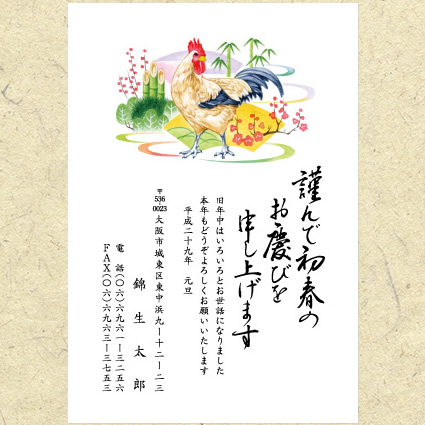 謹んで初春の
お慶びを
申し上げます
旧年中はいろいろとお世話になりました
本年もどうぞよろしくお願いいたします
平成二十九年 元旦
〒536-0023
大阪市城東区東中浜九ー十二ー二三
錦生太郎
電 話(〇六)六九六一ー三二五六
FAX(〇六)六九六三ー三七五三